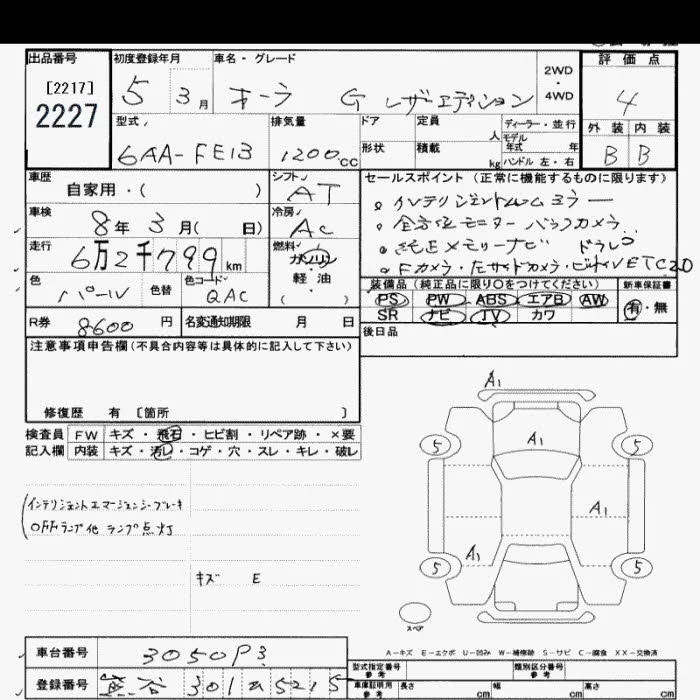 出品番号
[2217]
2227
初度登録年月
5 3月
車名・グレード
オーラ G レザーエディション
2WD
・
4WD
評価点
4
外装 内装
B B
型式
6AA-FE13
排気量
1200cc
ドア
形状
定員
人
積載
kg
ディーラー・並行
モデル
年式 年
ハンドル 左・右
車歴
自家用・( )
シフト
AT
車検
8年 3月( 日)
冷房
AC
走行
6万2千799km
燃料
ガソリン
軽油
( )
色
パール
色替
色コード
QAC
R券
8600円
名変通知期限 月 日
セールスポイント(正常に機能するものに限ります)
。インテリジェントルームミラー
。全方位モニター バックカメラ
。純正メモリーナビ ドラレコ
。Fカメラ・左サイドカメラ・ ETC2.0
装備品(純正品に限り○をつけてください)
PS PW ABS エアB AW
SR ナビ TV カワ
新車保証書
有・無
後日品
注意事項申告欄(不具合内容等は具体的に記入して下さい)
修復歴 有 [箇所 ]
検査員
記入欄
FW キズ・飛石・ヒビ割・リペア跡・×要
内装 キズ・汚レ・コゲ・穴・スレ・キレ・破レ
インテリジェントエマージェンシーブレーキ
OFFランプ他 ランプ点灯
キズ E
A1
A1
A1
A1
5
5
5
5
スペア
A-キズ E-エクボ U-凹み W-補修跡 S-サビ C-腐食 XX-交換済
車台番号
3050P3
登録番号
熊谷 301 5215
型式指定番号
参考
類別区分番号
参考
車庫証明用
参考
長さ cm
幅 cm
高さ cm